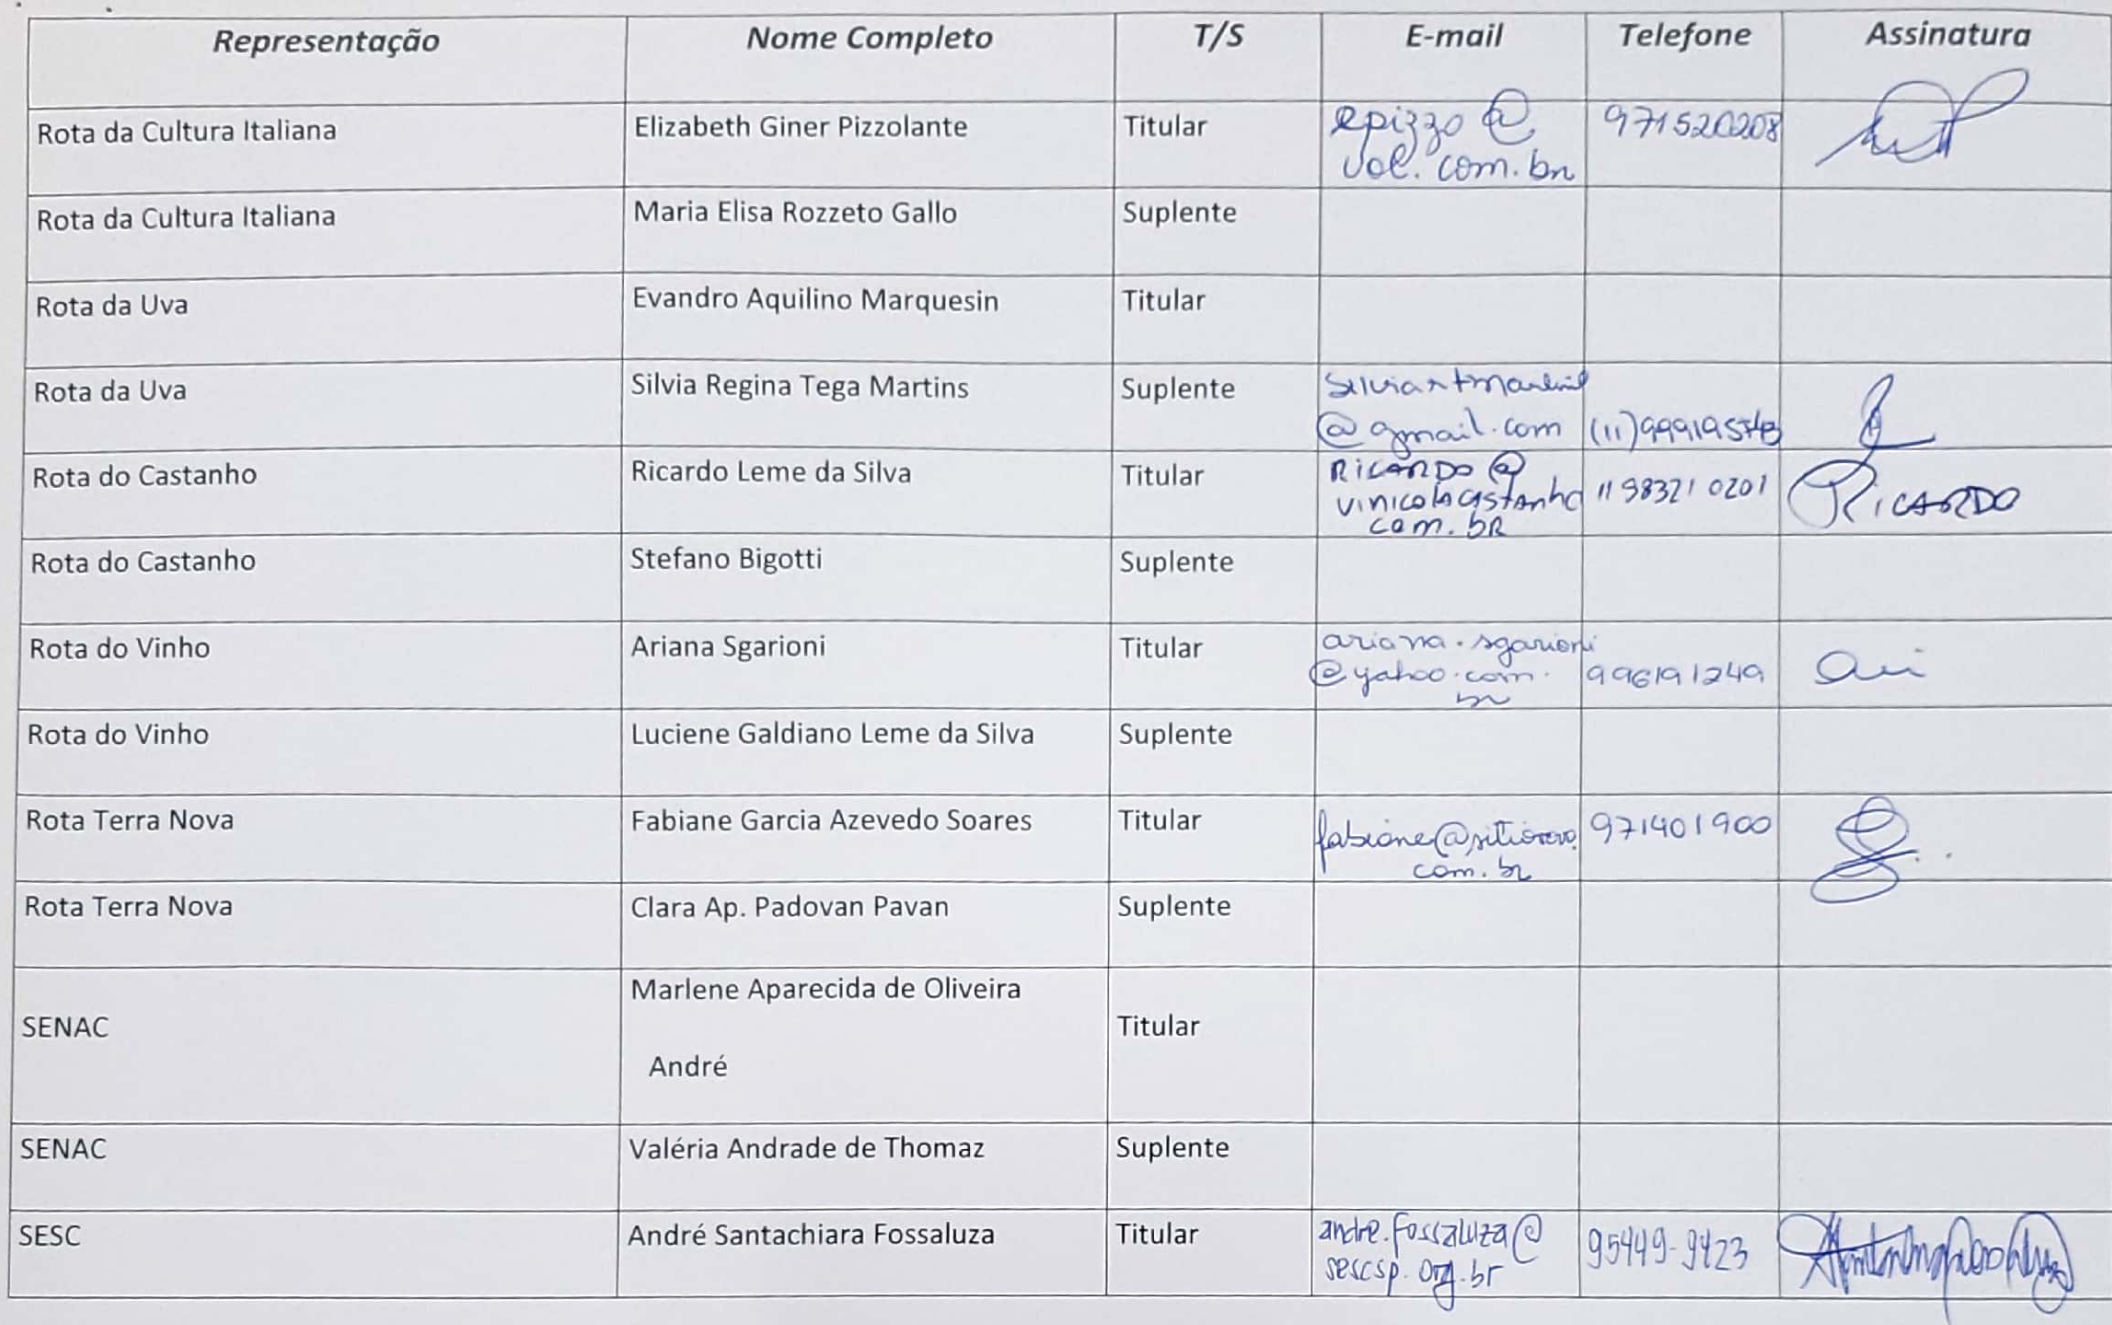 Representação Nome Completo T/S E-mail Telefone Assinatura
Rota da Cultura Italiana Elizabeth Giner Pizzolante Titular epizzo@ 971520208
uol.com.br
Rota da Cultura Italiana Maria Elisa Rozzeto Gallo Suplente
Rota da Uva Evandro Aquilino Marquesin Titular
Rota da Uva Silvia Regina Tega Martins Suplente
@gmail.com
Rota do Castanho Ricardo Leme da Silva Titular RICARDO@ 11 983210201 RICARDO
vinicolacastanho
com.bR
Rota do Castanho Stefano Bigotti Suplente
Rota do Vinho Ariana Sgarioni Titular ariana.sgarioni
@yahoo.com. 996191249
br
Rota do Vinho Luciene Galdiano Leme da Silva Suplente
Rota Terra Nova Fabiane Garcia Azevedo Soares Titular 971401900
com.br
Rota Terra Nova Clara Ap. Padovan Pavan Suplente
Marlene Aparecida de Oliveira
SENAC Titular
André
SENAC Valéria Andrade de Thomaz Suplente
SESC André Santachiara Fossaluza Titular andre.fossaluza@ 95449-9423
sescsp.org.br